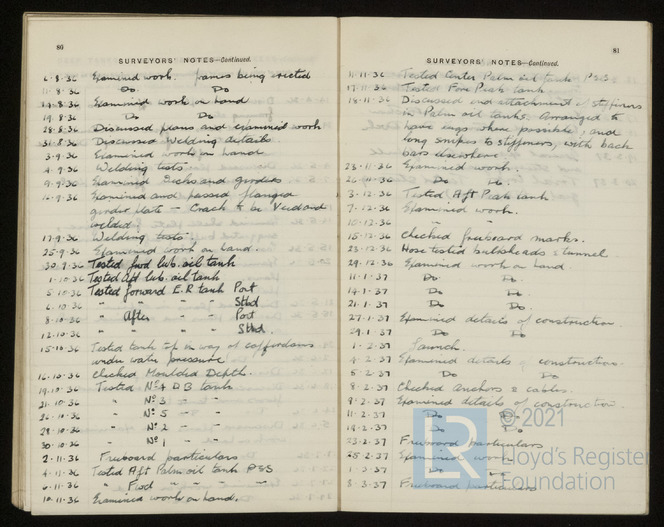 80
SURVEYORS' NOTES—Continued.
6.8.36 Examined work. frames being erected
11.8.36 Do. Do
14.8.36 Examined work on hand
19.8.36 Do Do
28.8.36 Discussed plans and examined work
31.8.36 Discussed Welding details
3.9.36 Examined work on hand
4.9.36 Welding tests.
9.9.36 Examined Decks and girders
16.9.36 Examined and passed flanged
girder plate - Crack to be Veed and
welded
17.9.36 Welding tests.
25.9.36 Examined work on hand.
30.9.36 Tested fwd lub. oil tank
1.10.36 Tested Aft lub. oil tank
5.10.36 Tested forward E.R tank Port
6.10.36 " " " " Stbd
8.10.36 " After " - Port
12.10.36 " " " " Stbd.
15.10.36 Tested tank top in way of cofferdams
under water pressure
16.10.36 Checked Moulded Depth.
19.10.36 Tested No 4 D B tank
21.10.36 " No 3 " "
26.10.36 " No 5 - -
29.10.36 " No 2 - -
30.10.36 " No 1 - -
2.11.36 Freeboard particulars
4.11.36 Tested Aft Palm oil tank P&S
6.11.36 " Fwd " " " "
10.11.36 Examined work on hand.
81
SURVEYORS' NOTES—Continued.
11.11.36 Tested Center Palm oil tank P&S
17.11.36 Tested Fore Peak tank
18.11.36 Discussed end attachment of stiffeners
in Palm oil tanks. Arranged to
have lugs where possible, and
long snipes to stiffeners, with back
bars elsewhere.
23.11.36 Examined work.
26.11.36 Do
3.12.36 Tested Aft Peak tank
7.12.36 Examined work.
10.12.36 "
15.12.36 Checked freeboard marks.
23.12.36 Hose tested bulkheads & tunnel
29.12.36 Examined work on hand
11.1.37 Do Do
14.1.37 Do Do
21.1.37 Do Do
27.1.37 Examined details of construction
29.1.37 Do Do
1.2.37 Launch.
4.2.37 Examined details of construction.
5.2.37 Do Do
8.2.37 Checked anchors & cables.
9.2.37 Examined details of construction.
11.2.37 Do Do
19.2.37 Do Do
23.2.37 Freeboard particulars
25.2.37 Examined work
1.3.37 Do
8.3.37 Freeboard particulars
LR
© 2021
Lloyd's Register
Foundation